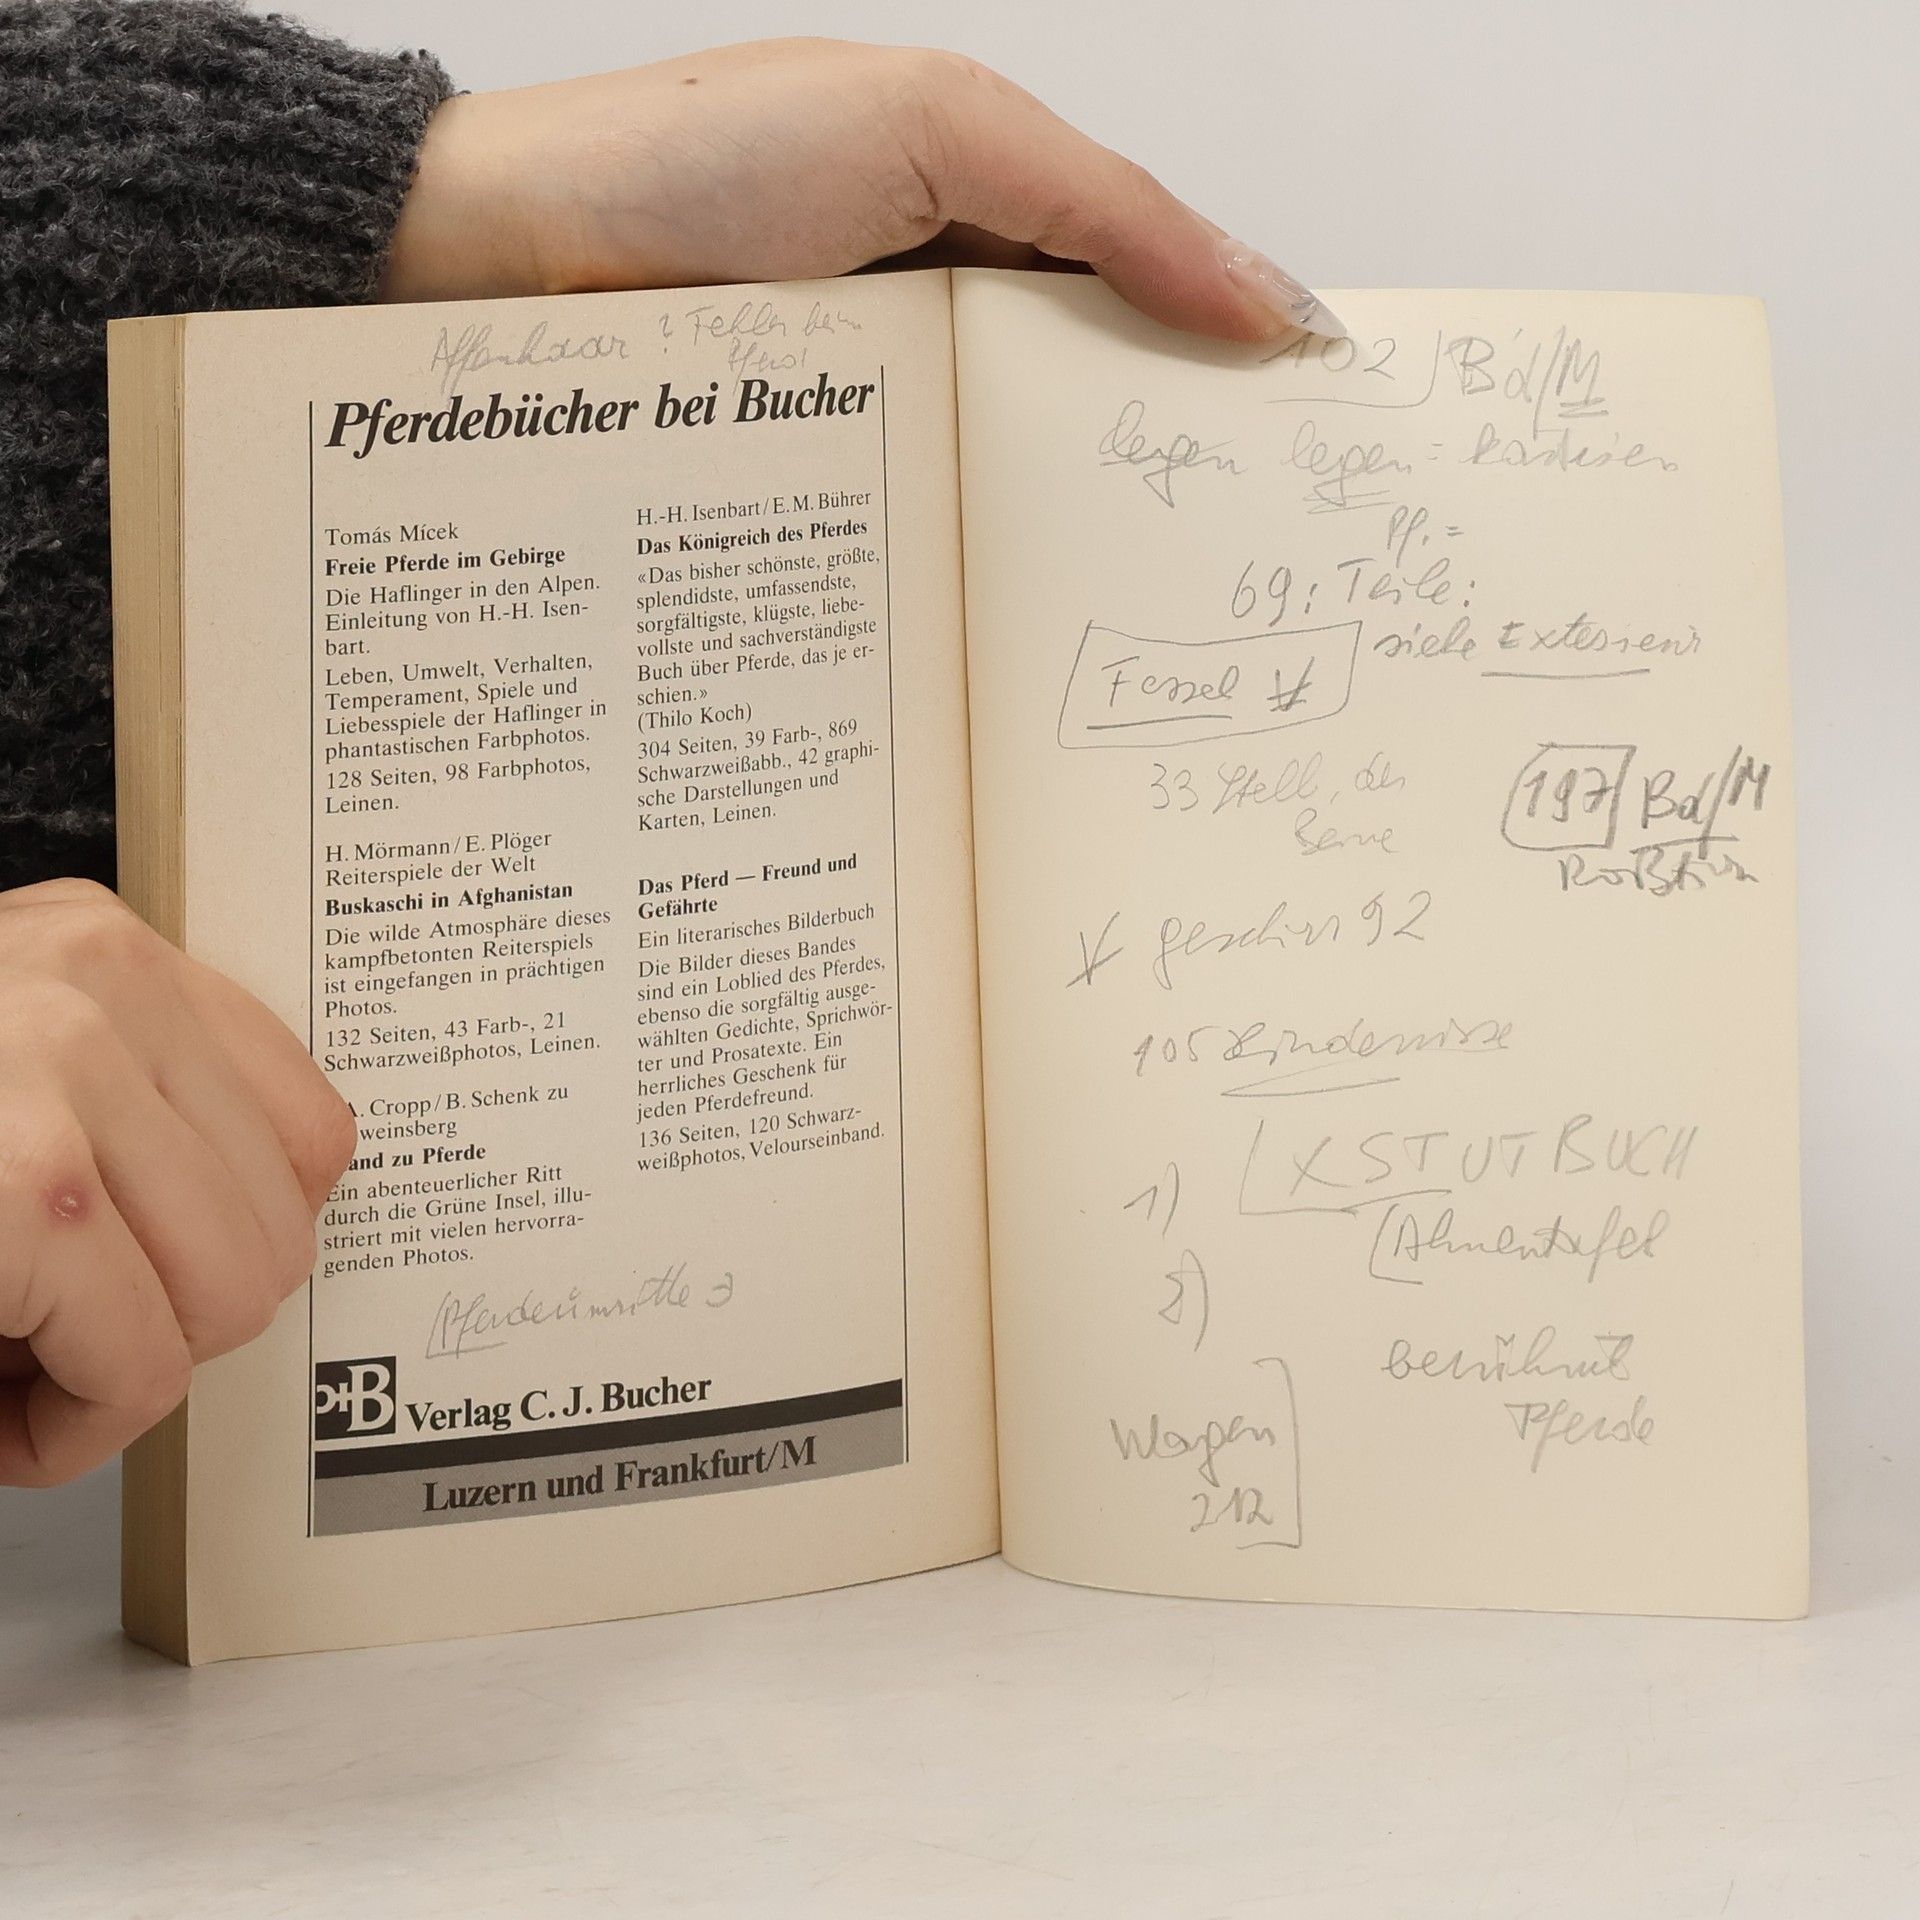 Affenhaar ? Fehler beim
Pferd
Pferdebücher bei Bucher
Tomás Mícek
Freie Pferde im Gebirge
Die Haflinger in den Alpen.
Einleitung von H.-H. Isen-
bart.
Leben, Umwelt, Verhalten,
Temperament, Spiele und
Liebesspiele der Haflinger in
phantastischen Farbphotos.
128 Seiten, 98 Farbphotos,
Leinen.
H. Mörmann/E. Plöger
Reiterspiele der Welt
Buskaschi in Afghanistan
Die wilde Atmosphäre dieses
kampfbetonten Reiterspiels
ist eingefangen in prächtigen
Photos.
132 Seiten, 43 Farb-, 21
Schwarzweißphotos, Leinen.
A. Cropp/B. Schenk zu
weinsberg
and zu Pferde
Ein abenteuerlicher Ritt
durch die Grüne Insel, illu-
striert mit vielen hervorra-
genden Photos.
H.-H. Isenbart/E. M. Bührer
Das Königreich des Pferdes
«Das bisher schönste, größte,
splendidste, umfassendste,
sorgfältigste, klügste, liebe-
vollste und sachverständigste
Buch über Pferde, das je er-
schien.»
(Thilo Koch)
304 Seiten, 39 Farb-, 869
Schwarzweißabb., 42 graphi-
sche Darstellungen und
Karten, Leinen.
Das Pferd — Freund und
Gefährte
Ein literarisches Bilderbuch
Die Bilder dieses Bandes
sind ein Loblied des Pferdes,
ebenso die sorgfältig ausge-
wählten Gedichte, Sprichwör-
ter und Prosatexte. Ein
herrliches Geschenk für
jeden Pferdefreund.
136 Seiten, 120 Schwarz-
weißphotos, Velourseinband.
B Verlag C. J. Bucher
Luzern und Frankfurt/M
102 Bd/M
legen legen =
Pf. =
69: Teile:
siehe Exterieur
Fessel
33 Stell. der
Beine
197 Bd/M
geschirr 92
105 Hindernisse
1) X STUTBUCH
(Ahnentafel
2)
berühmt
Pferde
Wagen
212